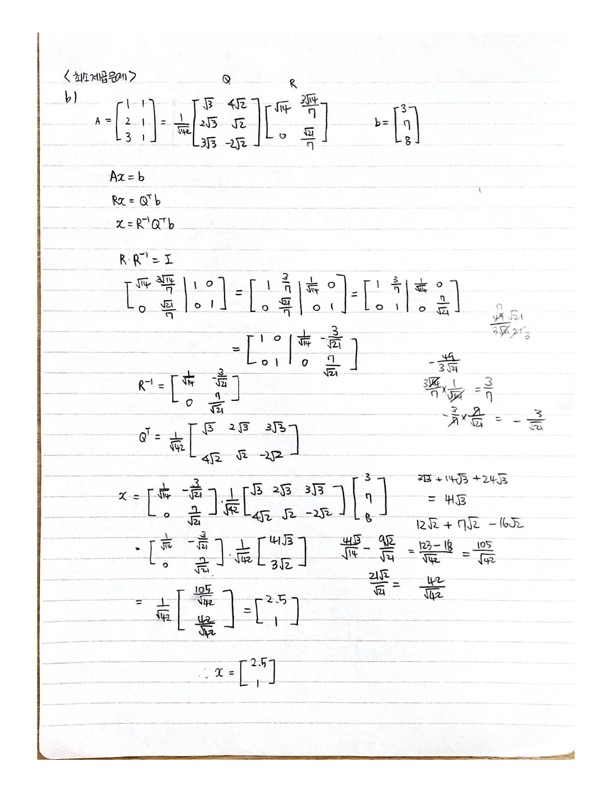 <최소제곱문제>
b)
Q R
A = [1 1; 2 1; 3 1] = 1/√42 [√3 4√2; 2√3 √2; 3√3 -2√2] [√14 3√14/7; 0 √21/7] b = [3; 7; 8]
Ax = b
Rx = Qᵀb
x = R⁻¹Qᵀb
R·R⁻¹ = I
[√14 3√14/7 | 1 0; 0 √21/7 | 0 1] = [1 3/7 | 1/√14 0; 0 √21/7 | 0 1] = [1 3/7 | 1/√14 0; 0 1 | 0 7/√21]
= [1 0 | 1/√14 -3/√21; 0 1 | 0 7/√21]
R⁻¹ = [1/√14 -3/√21; 0 7/√21]
3√14/7 × 1/√14 = 3/7
-3/7 × 7/√21 = -3/√21
Qᵀ = 1/√42 [√3 2√3 3√3; 4√2 √2 -2√2]
x = [1/√14 -3/√21; 0 7/√21] · 1/√42 [√3 2√3 3√3; 4√2 √2 -2√2] [3; 7; 8]
3√3 + 14√3 + 24√3
= 41√3
12√2 + 7√2 - 16√2
= [1/√14 -3/√21; 0 7/√21] · 1/√42 [41√3; 3√2]
41√3/√14 - 9√2/√21 = 123-18/√42 = 105/√42
21√2/√21 = 42/√42
= 1/√42 [105/√42; 42/√42] = [2.5; 1]
∴ x = [2.5; 1]